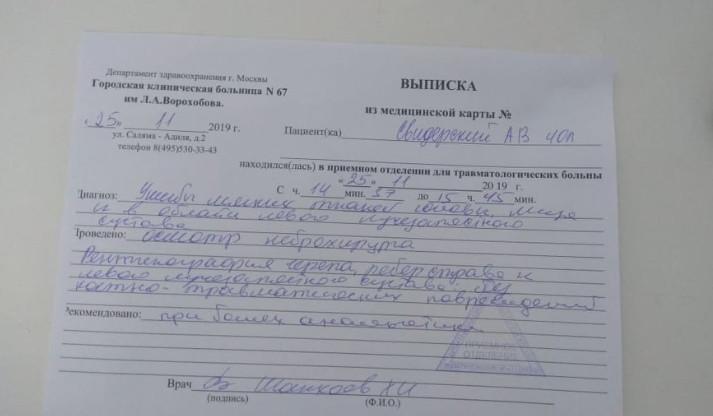 Департамент здравоохранения г. Москвы
Городская клиническая больница N 67
им Л.А.Ворохобова.
«25» 11 2019 г.
ул. Саляма - Адиля, д.2
телефон 8(495)530-33-43
ВЫПИСКА
из медицинской карты №
Пациент(ка) Свидерский АВ 40л
находился(лась) в приемном отделении для травматологических больных
«25» 11 2019 г.
С ч. 14 мин. 37 до 15 ч. 45 мин.
Диагноз: Ушибы мягких тканей головы, лица
и в области левого лучезапястного
сустава
Проведено: осмотр нейрохирурга
Рентгенография черепа, ребер справа и
левого лучезапястного сустава: без
костно-травматических повреждений
Рекомендовано: при болях анальгетики
ПРИЕМНОЕ
ОТДЕЛЕНИЕ
Врач
(подпись) (Ф.И.О.)